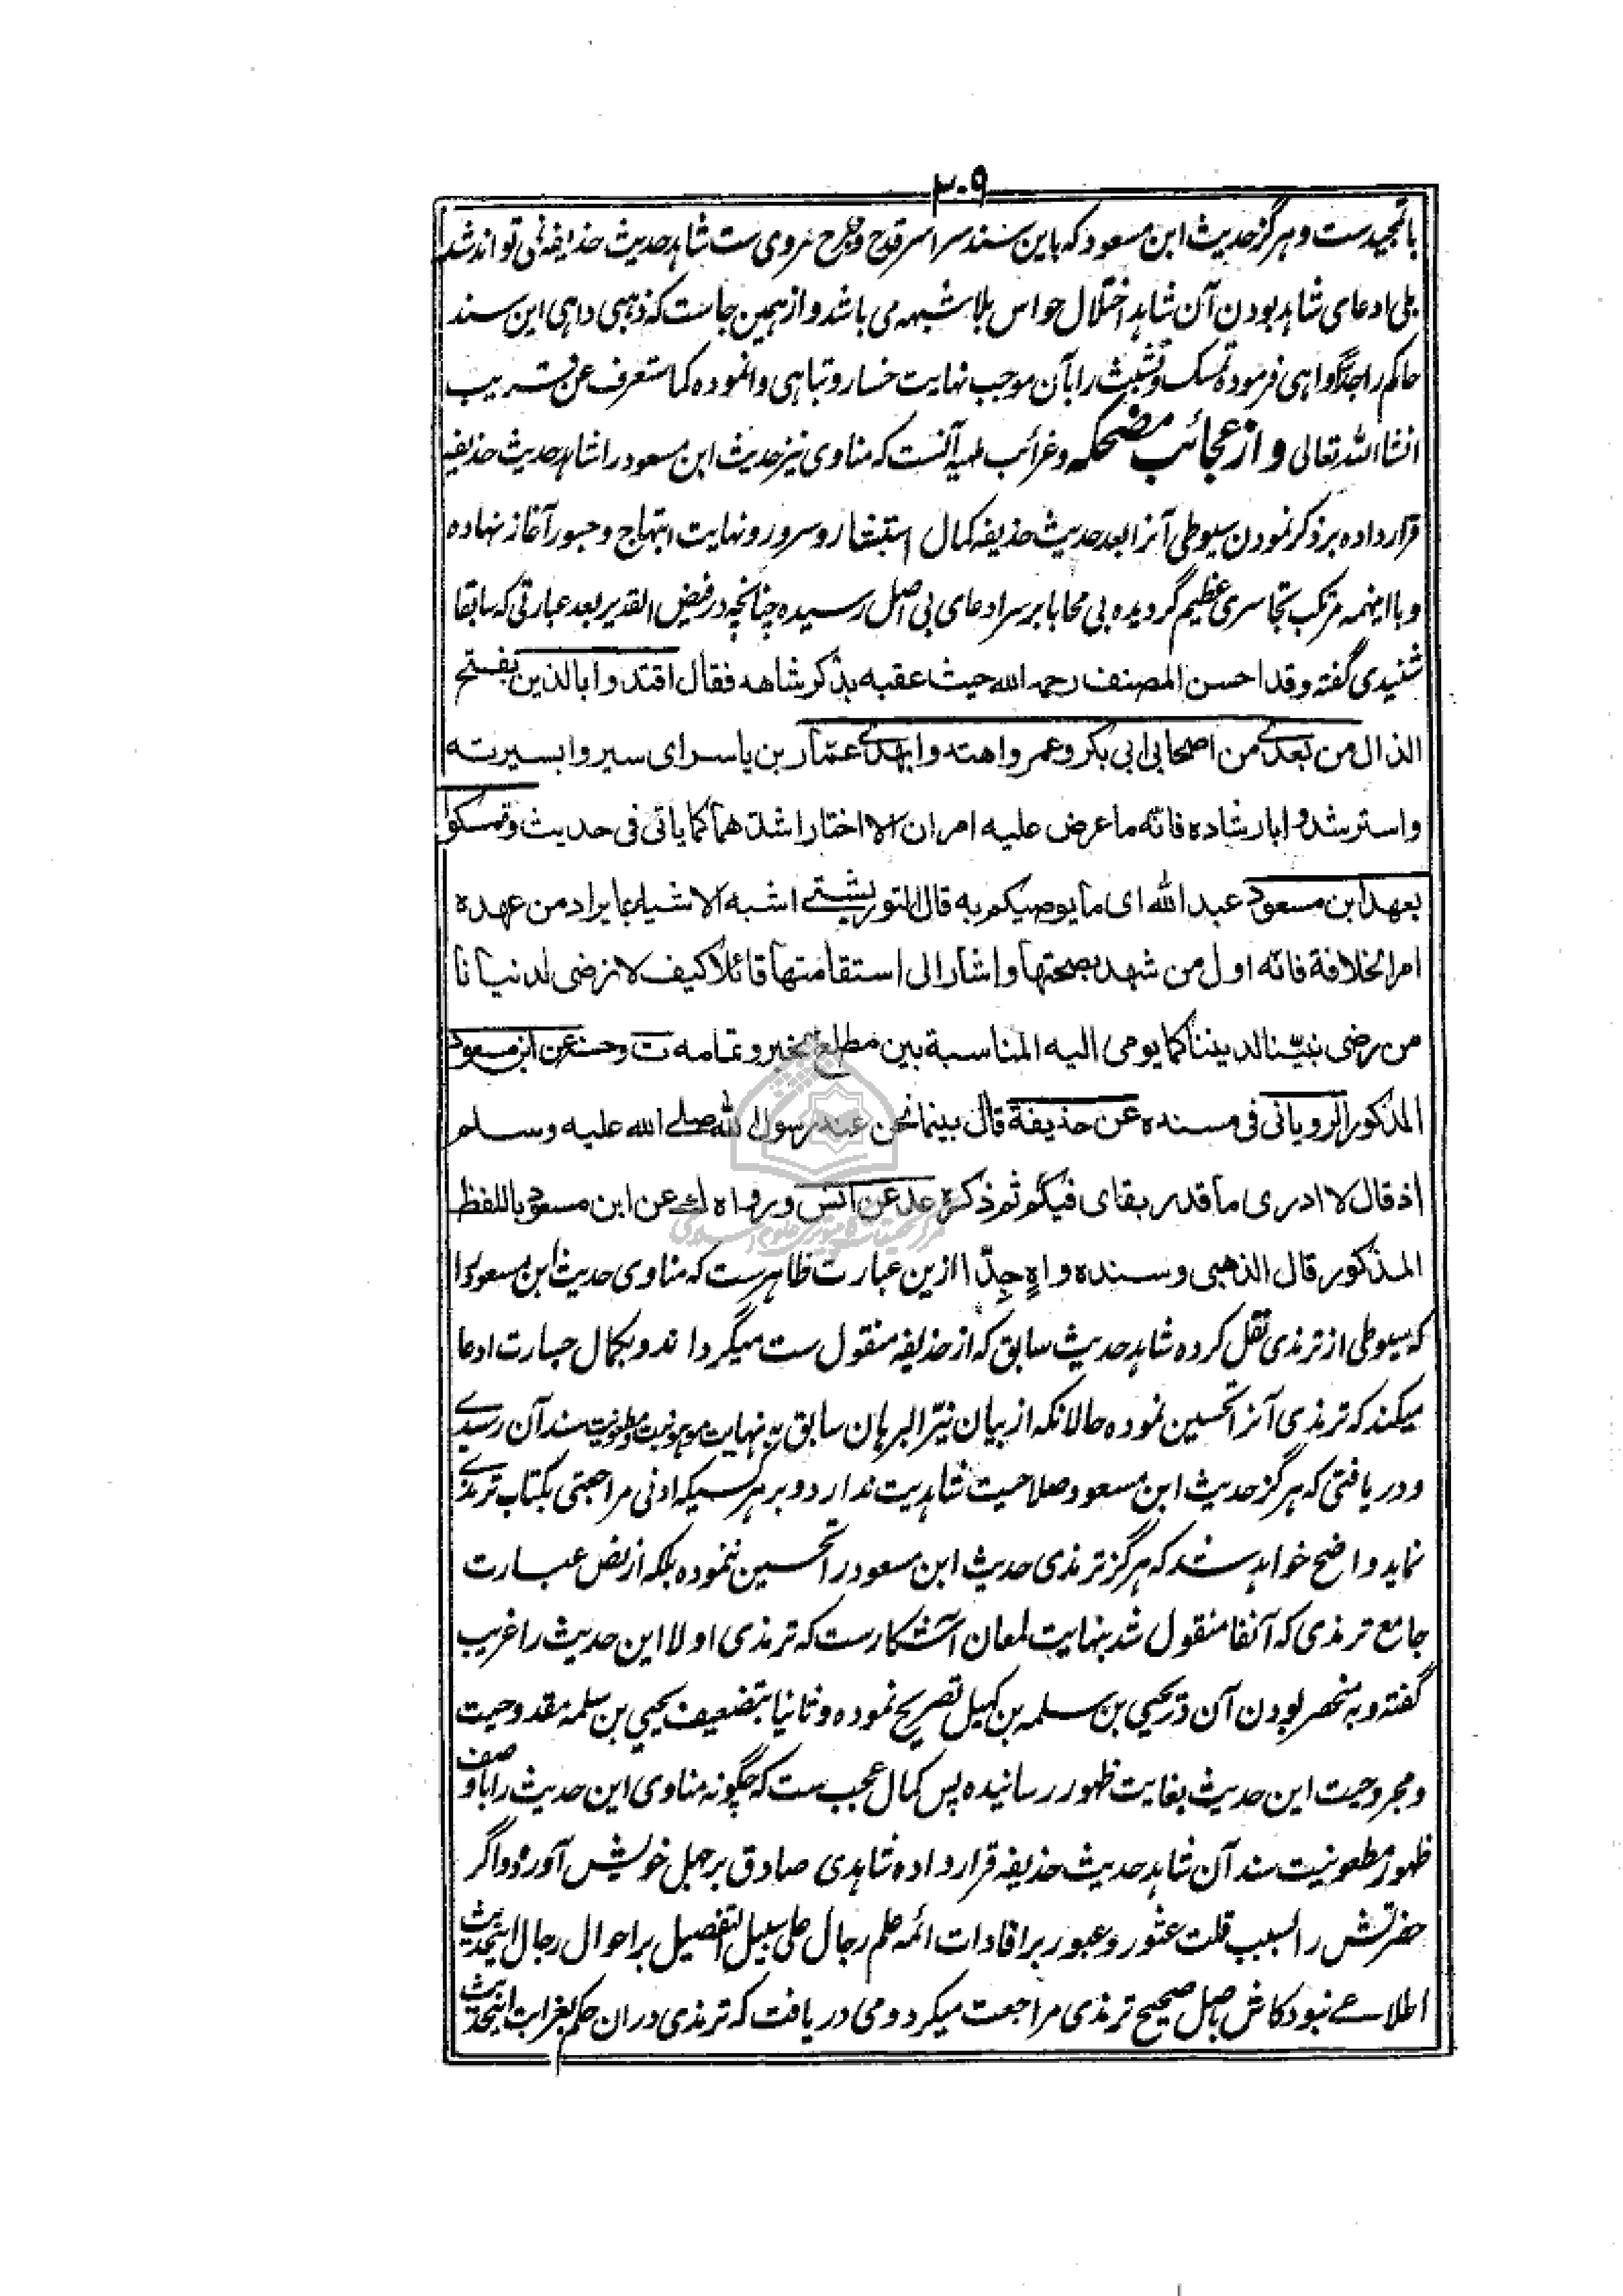 ۳۰۹
بالجمیدست و هرگز حدیث ابن مسعود که باین سند سراسر قدح و جرح مروی ست شاهد حدیث حذیفه نمی تواند شد
بلی ادعای شاهد بودن آن شاهد اختلال حواس بلا شبهه می باشد و از همین جاست که ذهبی داهی این سند
حاکم را جدّا واهی فرموده تمسک و تشبث را بآن موجب نهایت خسار و تباهی وانموده کما ستعرف عن قریب
انشاءالله تعالی و از عجائب مضحکه و غرائب ملهیه آنست که مناوی نیز حدیث ابن مسعود را شاهد حدیث حذیفه
قرار داده بر ذکر نمودن سیوطی آنرا بعد حدیث حذیفه کمال استبشار و سرور و نهایت ابتهاج و حبور آغاز نهاده
و با اینهمه مرتکب تجاسری عظیم گردیده بی محابا بر سر ادعای بی اصل رسیده چنانچه در فیض القدیر بعد عبارتی که سابقا
شنیدی گفته وقد احسن المصنف رحمه الله حیث عقبه بذکر شاهده فقال اقتدوا بالذین بفتح
الذال من بعدی من اصحابی ابی بکر وعمر واهتدوا بهدی عمّار بن یاسر ای سیروا بسیرته
واسترشدوا بارشاده فانّه ما عرض علیه امران الا اختار اشدّهما کما یاتی فی حدیث وتمسکوا
بعهد ابن مسعود عبد الله ای ما یوصیکم به قال التوربشتی اشبه الاشیاء بما یراد من عهده
امر الخلافة فانّه اول من شهد بصحتها واشار الی استقامتها قائلا کیف لا نرضی لدنیانا
من رضی نبیّنا لدیننا کما یومی الیه المناسبة بین مطلع الخبر وتمامه ت وحسنه عن ابن مسعود
المذکور الرویانی فی مسنده عن حذیفة قال بینما نحن عند رسول الله صلی الله علیه وسلم
اذ قال لا ادری ما قدر بقای فیکم ثم ذکره عد عن انس ورواه ك عن ابن مسعود باللفظ
المذکور قال الذهبی وسنده واهٍ جدّا ازین عبارت ظاهرست که مناوی حدیث ابن مسعود را
که سیوطی از ترمذی نقل کرده شاهد حدیث سابق که از حذیفه منقول ست میگرداند و بکمال جسارت ادعا
میکند که ترمذی آنرا تحسین نموده حالانکه از بیان نیّر البرهان سابق به نهایت موهونیت و مطعونیت سند آن رسیدی
و دریافتی که هرگز حدیث ابن مسعود صلاحیت شاهدیت ندارد و بر هر کسیکه ادنی مراجعتی بکتاب ترمذی
نماید واضح خواهد شد که هرگز ترمذی حدیث ابن مسعود را تحسین ننموده بلکه از نص عبارت
جامع ترمذی که آنفا منقول شد بنهایت لمعان آشکارست که ترمذی اولا این حدیث را غریب
گفته و به منحصر بودن آن در یحیی بن سلمه بن کهیل تصریح نموده و ثانیا بتضعیف یحیی بن سلمه مقدوحیت
و مجروحیت این حدیث بغایت ظهور رسانیده پس کمال عجب ست که چگونه مناوی این حدیث را با وصف
ظهور مطعونیت سند آن شاهد حدیث حذیفه قرار داده شاهدی صادق بر جهل خویش آورده و اگر
حضرتش را بسبب قلت عثور و عبور بر افادات ائمه علم رجال علی سبیل التفصیل بر احوال رجال این حدیث
اطلاعے نبود کاش باصل صحیح ترمذی مراجعت میکرد و می دریافت که ترمذی دران حکم بغرابت این حدیث